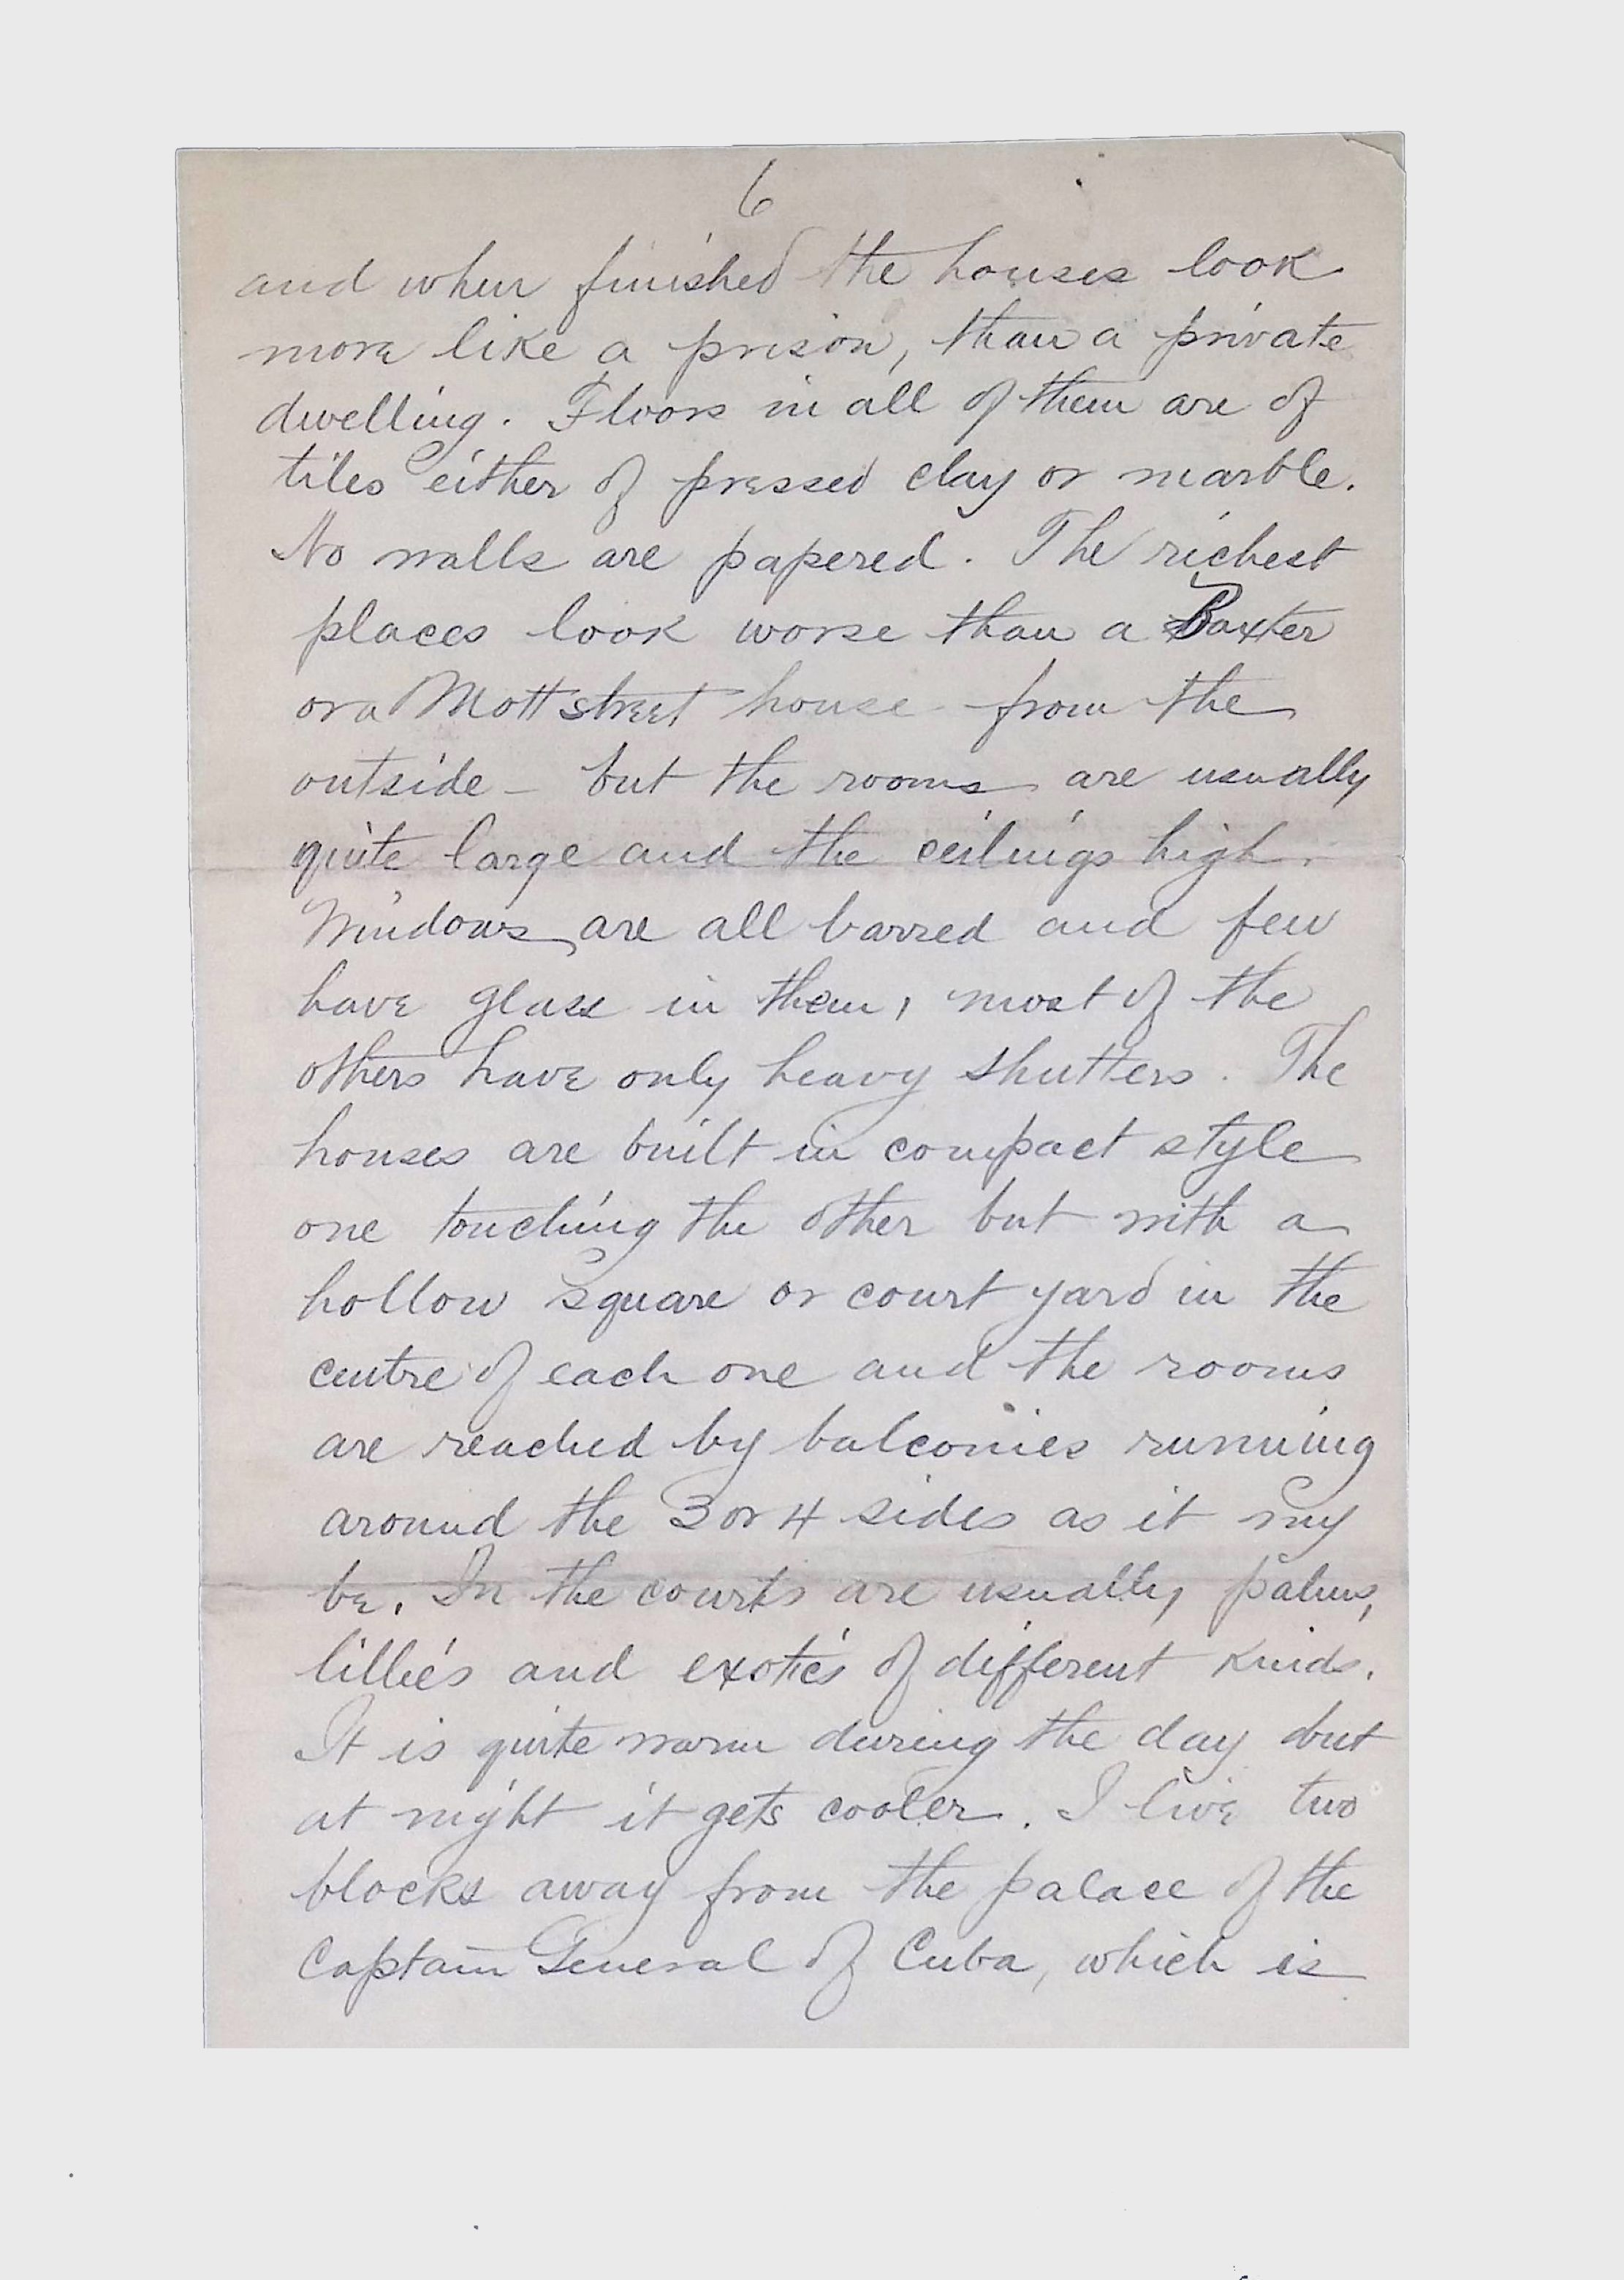 6
and when finished the houses look
more like a prison, than a private
dwelling. Floors in all of them are of
tiles either of pressed clay or marble.
No walls are papered. The richest
places look worse than a Baxter
or a Mott street house from the
outside - but the rooms are usually
quite large and the ceilings high.
Windows are all barred and few
have glass in them, most of the
others have only heavy shutters. The
houses are built in compact style
one touching the other but with a
hollow square or court yard in the
centre of each one and the rooms
are reached by balconies running
around the 3 or 4 sides as it my
be. In the courts are usually, palms,
lillies and exotics of different kinds.
It is quite warm during the day but
at night it gets cooler. I live two
blocks away from the palace of the
Captain General of Cuba, which is